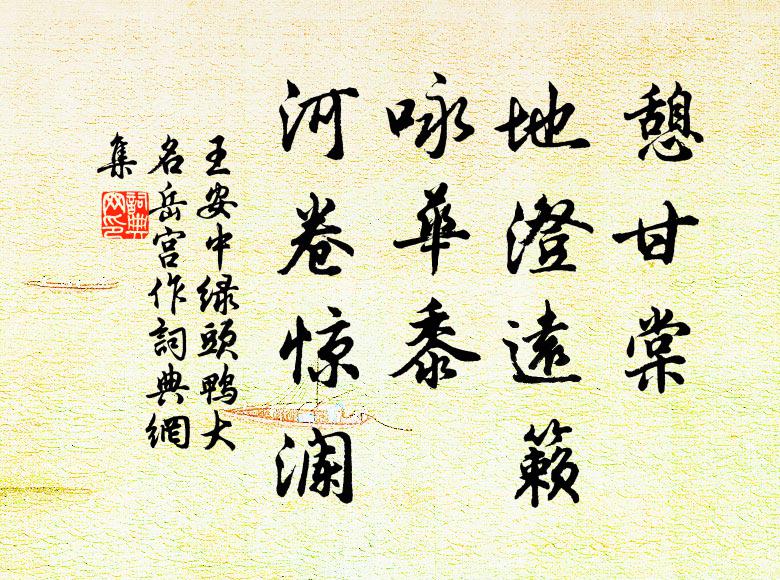 憩甘棠
地澄遠籟
咏華黍
河卷惊澜
王安中绿頭鴨大
名岳宫作詞典網
集
詞典網印